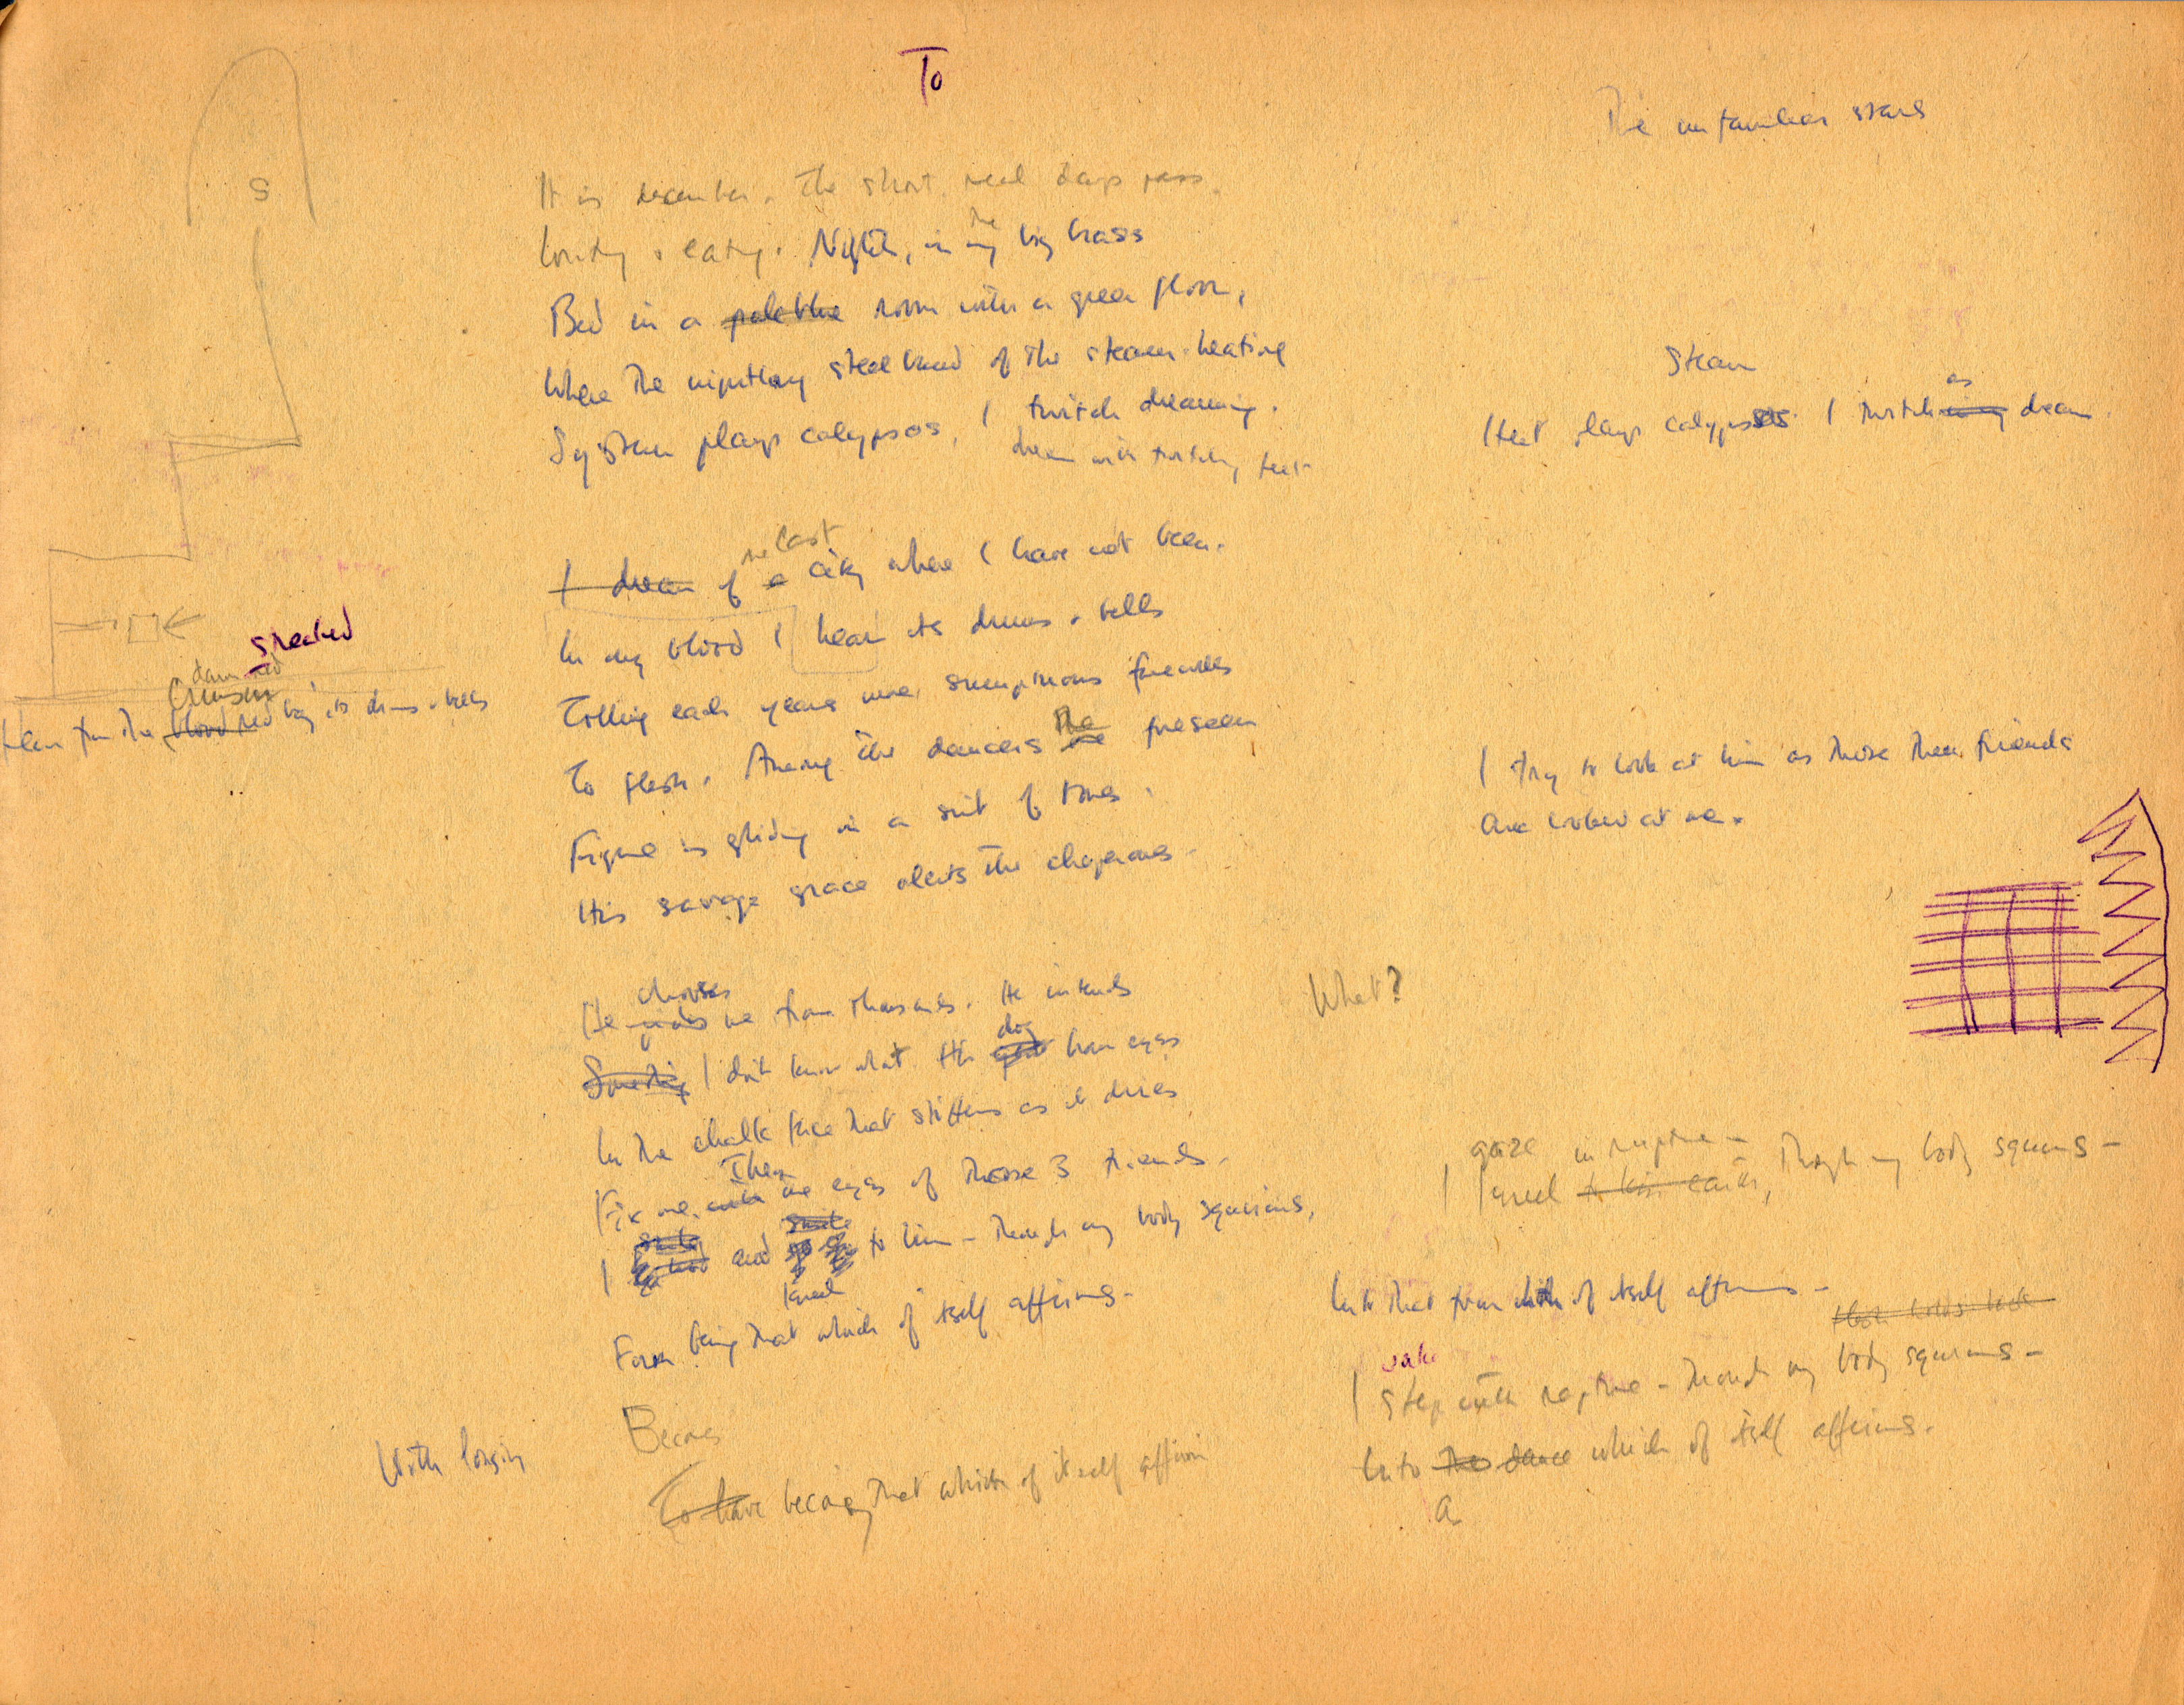 To
The unfamiliar stars
It is december. The short real days pass
the
Working & eating. Nights, in my big brass
Bed in a pale blue room with a green floor,
Where the nightlong steel band of the steam-heating
System plays calypsos, I twitch dreaming.
dream with twitching feet
Steam
as
Heat plays calypsos. I twitch dream.
the last
I dream of a city where I have not been.
In my blood I hear its drums & bells
Tolling each year's more sumptuous farewells
the
To flesh. Among the dancers foreseen
Figure is gliding in a suit of bones.
His savage grace alerts the chaperones.
sneaked
Crimson
Hear from the blood red its drums & bells
I try to look at him as those three friends
Have looked at me.
chooses
He me from thousands. He intends
What?
dog
Something I don't know what. His brown eyes
In the chalk face that stiffens as it dries
Then
Fix me with the eyes of those 3 friends.
smile
I and to him – though my body squirms,
kneel
From being that which of itself affirms.
gaze in rapture –
I kneel to kiss earth, though my body squirms –
Into that from which of itself affirms –
flesh holds back
wake
I step with rapture – though my body squirms –
Into the dance which of itself affirms.
a
With longing
Becomes
To have becoming that which of itself affirm
S